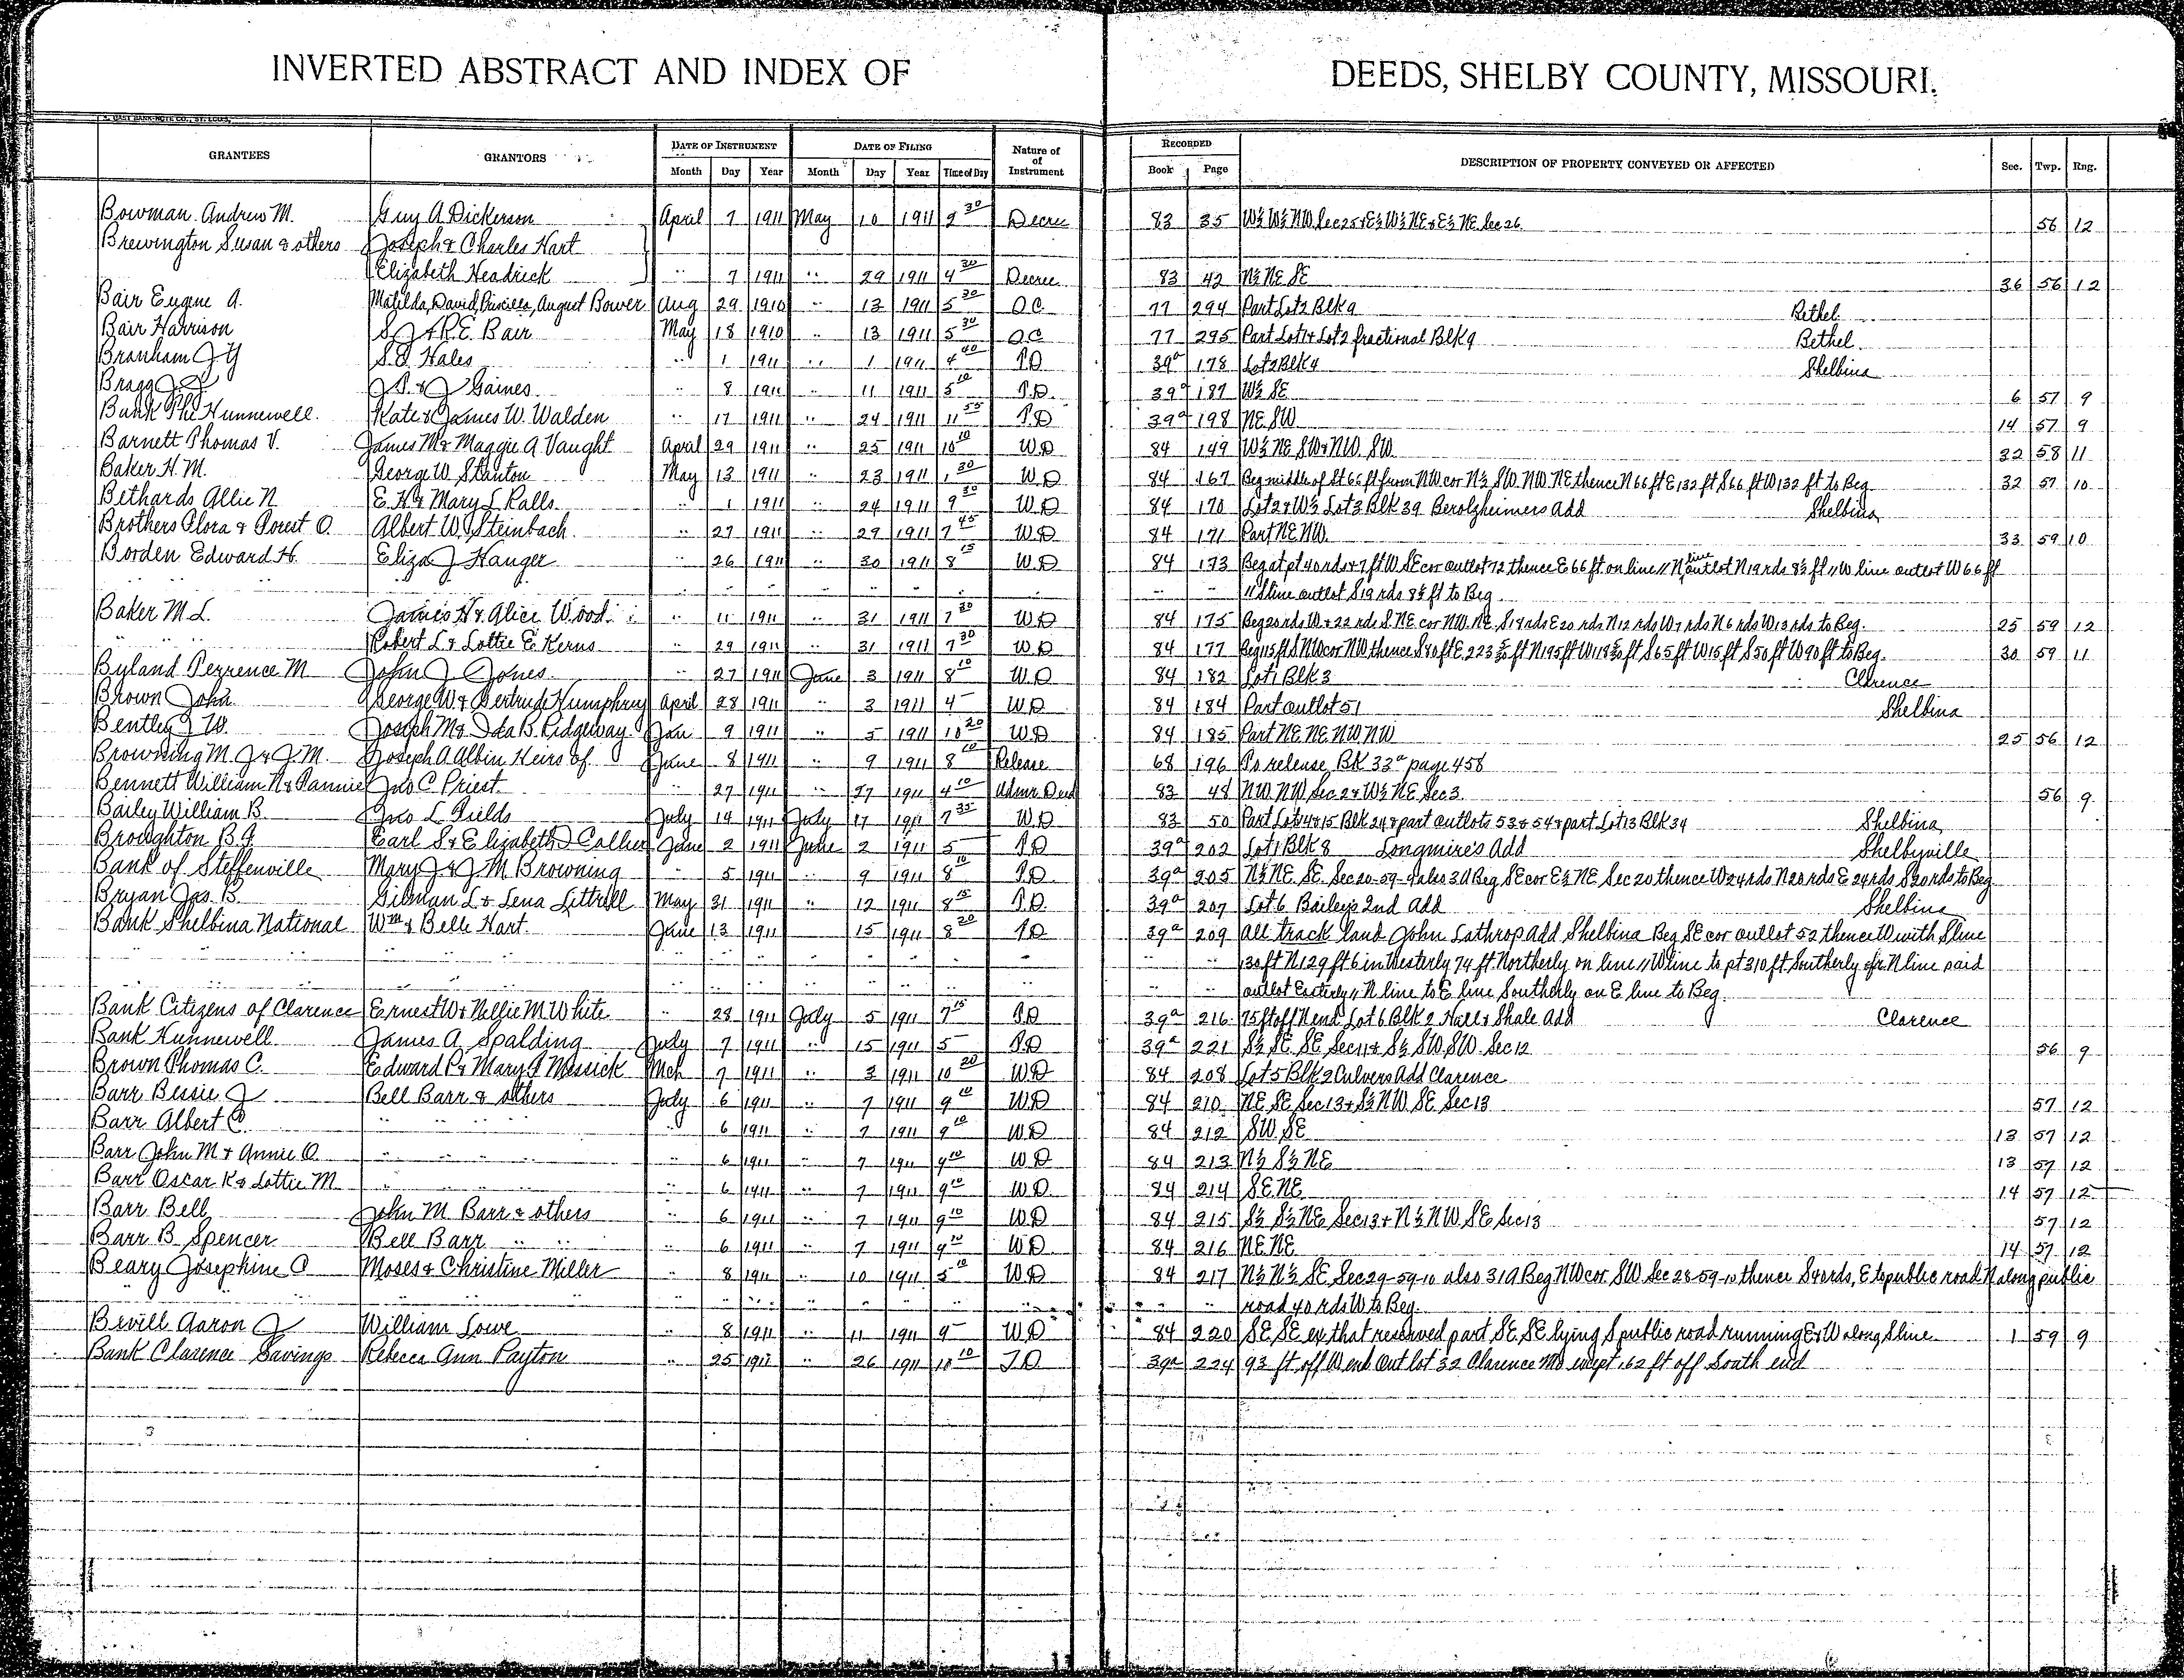 INVERTED ABSTRACT AND INDEX OF DEEDS, SHELBY COUNTY, MISSOURI.
GRANTEES GRANTORS DATE OF INSTRUMENT DATE OF FILING Nature of of Instrument RECORDED DESCRIPTION OF PROPERTY CONVEYED OR AFFECTED Sec. Twp. Rng.
Month Day Year Month Day Year Time of Day Book Page
Bowman Andrew M. Guy A Dickerson April 7 1911 May 10 1911 9 30 Decree 83 35 W½ W½ NW Sec 25 & E½ W½ NE & E½ NE Sec 26 56 12
Brewington Susan & others Joseph & Charles Hart
Elizabeth Headrick " 7 1911 " 29 1911 4 30 Decree 83 42 N½ NE SE 36 56 12
Bair Eugene A. Matilda, David, Priscilla, August Bower Aug 29 1910 " 13 1911 5 30 QC 77 294 Part Lot 2 Blk 9 Bethel
Bair Harrison S J & R.E. Bair May 18 1910 " 13 1911 5 30 QC 77 295 Part Lot 1 & Lot 2 fractional Blk 9 Bethel
Branham J Y S.D. Hales " 1 1911 " 1 1911 4 40 TD 39a 178 Lot 2 Blk 4 Shelbina
Bragg J L J.P. & J Gaines " 8 1911 " 11 1911 5 10 T.D. 39a 187 W½ SE 6 57 9
Bank The Hunnewell. Kate & James W. Walden " 17 1911 " 24 1911 11 55 T.D 39a 198 NE SW 14 57 9
Barnett Thomas V. James M & Maggie A Vaught April 29 1911 " 25 1911 10 10 WD 84 149 W½ NE SW & NW SW 32 58 11
Baker H. M. George W Stanton May 13 1911 " 23 1911 1 30 WD 84 167 Beg middle of St 66 ft from NW cor N½ SW NW NE thence N 66 ft E 132 ft S 66 ft W 132 ft to Beg 32 57 10
Bethards Allie N E. H & Mary L Ralls " 1 1911 " 24 1911 9 30 WD 84 170 Lot 2 & W½ Lot 3 Blk 39 Berolzheimers Add Shelbina
Brothers Clora & Forest O. Albert W. Steinbach " 27 1911 " 29 1911 7 45 WD 84 171 Part NE NW 33 59 10
Borden Edward H. Eliza J Hanger " 26 1911 " 30 1911 8 15 WD 84 173 Beg at pt 40 rds & 7 ft W SE cor outlot 72 thence E 66 ft on line // N line outlot N 19 rds 8½ ft // W line outlot W 66 ft
" " " " " " " " " " // S line outlot S 19 rds 8½ ft to Beg
Baker M. L. James H & Alice Wood " 11 1911 " 31 1911 7 30 WD 84 175 Beg 20 rds W & 22 rds S NE cor NW NE, S 18 rds E 20 rds N 12 rds W 7 rds N 6 rds W 13 rds to Beg. 25 59 12
" " " Robert L & Lottie E Kerns " 29 1911 " 31 1911 7 30 WD 84 177 30 59 11
Byland Perrence M John J Jones " 27 1911 June 3 1911 8 10 WD 84 182 Lot 1 Blk 3 Clarence
Brown John George W & Gertrude Humphrey April 28 1911 " 3 1911 4 – WD 84 184 Part outlot 51 Shelbina
Bentley J W. Joseph M & Ida B Ridgeway Jan 9 1911 " 5 1911 10 20 WD 84 185 Part NE NE NW NW 25 56 12
Browning M. J & J. M. Joseph A Albin Heirs of June 8 1911 " 9 1911 8 10 Release 68 196 To release Bk 33a page 458
Bennett William N & Fannie Jno C Priest " 27 1911 " 27 1911 4 10 Admr Deed 83 48 NW NW Sec 2 & W½ NE Sec 3 56 9
Bailey William B. Jno L Fields July 14 1911 July 17 1911 7 35 WD 83 50 Part Lots 14 & 15 Blk 24 & part outlots 53 & 54 & part Lot 13 Blk 34 Shelbina
Broughton B. F. Earl S & Elizabeth D Collier June 2 1911 June 2 1911 5 – TD 39a 202 Lot 1 Blk 8 Longmire's Add Shelbyville
Bank of Steffenville Mary J & J M Browning " 5 1911 " 9 1911 8 10 TD 39a 205 N½ NE SE Sec 20-59-9 also 3 A Beg SE cor E½ NE Sec 20 thence W 24 rds N 20 rds E 24 rds S 20 rds to Beg
Bryan Jas. B. Gilman L & Lena Littrell May 31 1911 " 12 1911 8 15 T.D. 39a 207 Lot 6 Bailey's 2nd Add Shelbina
Bank Shelbina National Wm & Belle Hart June 13 1911 " 15 1911 8 20 TD 39a 209 All track land John Lathrop Add Shelbina Beg SE cor outlot 52 thence W with S line
" " " " " " " " " " 130 ft N 129 ft 6 in Westerly 74 ft Northerly on line // W line to pt 310 ft Southerly fr N line said
" " " " " " " " " " outlot Easterly // N line to E line Southerly on E line to Beg.
Bank Citizens of Clarence Ernest W & Nellie M White " 28 1911 July 5 1911 7 15 TD 39a 216 75 ft off N end Lot 6 Blk 2 Hall & Shale Add Clarence
Bank Hunnewell James A Spalding July 7 1911 " 15 1911 5 – TD 39a 221 S½ SE SE Sec 11 & S½ SW SW Sec 12 56 9
Brown Thomas C. Edward P & Mary F Messick Mch 7 1911 " 3 1911 10 20 WD 84 208 Lot 5 Blk 2 Culvers Add Clarence
Barr Bessie J Bell Barr & others July 6 1911 " 7 1911 9 10 WD 84 210 NE SE Sec 13 & S½ NW SE Sec 13 57 12
Barr Albert C. " " " " 6 1911 " 7 1911 9 10 WD 84 212 SW SE 13 57 12
Barr John M & Annie O. " " " " 6 1911 " 7 1911 9 10 WD 84 213 N½ S½ NE 13 57 12
Barr Oscar K & Lottie M " " " " 6 1911 " 7 1911 9 10 WD 84 214 SE NE 14 57 12
Barr Bell John M Barr & others " 6 1911 " 7 1911 9 10 WD 84 215 S½ S½ NE Sec 13 & N½ NW SE Sec 13 57 12
Barr B. Spencer Bell Barr " " " 6 1911 " 7 1911 9 10 WD 84 216 NE NE 14 57 12
Beary Josephine C Moses & Christine Miller " 8 1911 " 10 1911 5 10 WD 84 217 N½ N½ SE Sec 29-59-10 also 31 A Beg NW cor SW Sec 28-59-10 thence S 40 rds, E to public road N along public
" " " " " " " " " " road 40 rds W to Beg.
Bevill Aaron J William Lowe " 8 1911 " 11 1911 9 – WD 84 220 SE SE ex that reserved part SE SE lying S public road running E & W along S line 1 59 9
Bank Clarence Savings Rebecca Ann Payton " 25 1911 " 26 1911 10 10 TD 39a 224 93 ft off W end Out lot 32 Clarence Mo except 162 ft off South end